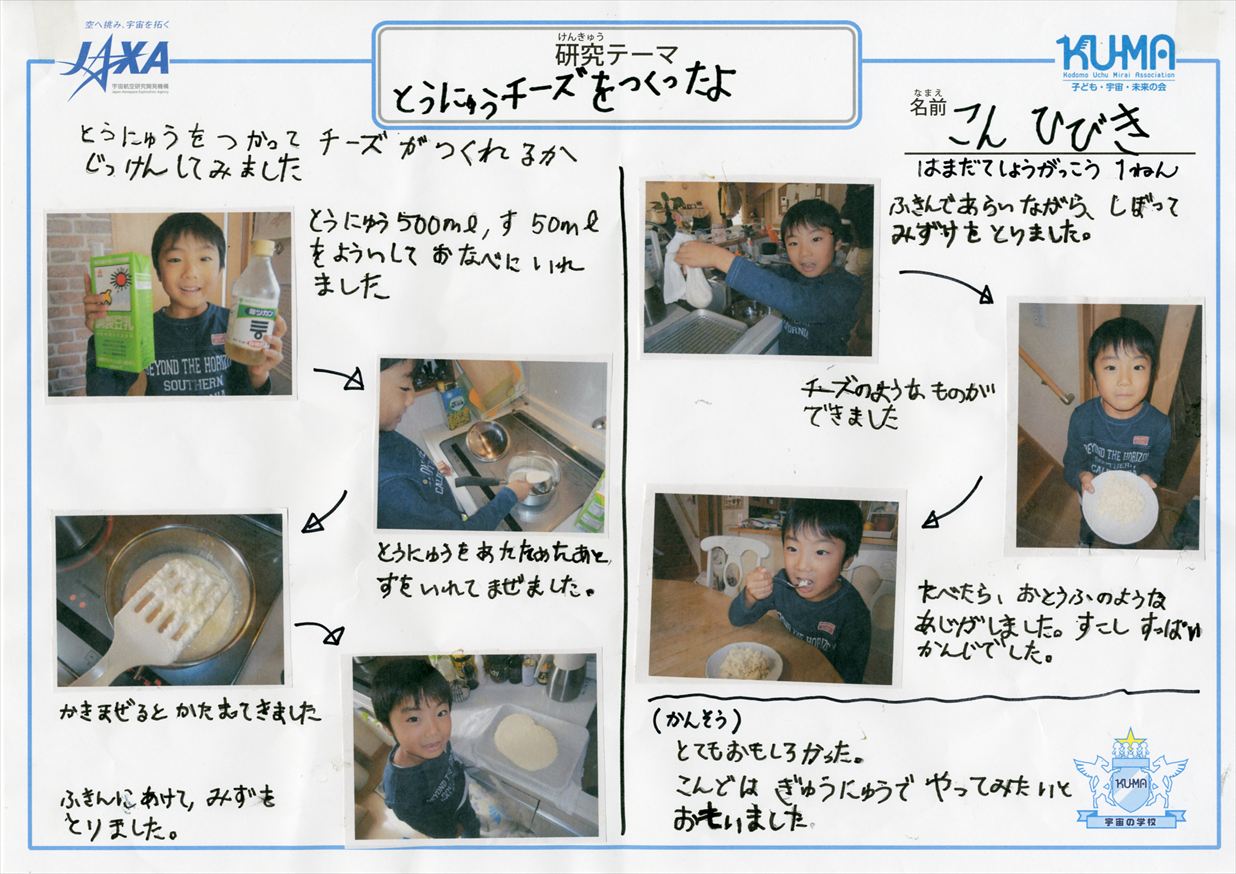 空へ挑み、宇宙を拓く
JAXA
宇宙航空研究開発機構
Japan Aerospace Exploration Agency
けんきゅう
研究テーマ
とうにゅうチーズをつくったよ
KU-MA
Kodomo Uchu Mirai Association
子ども・宇宙・未来の会
なまえ
名前 こん ひびき
はまだてしょうがっこう 1ねん
とうにゅうをつかって チーズがつくれるか
じっけんしてみました
とうにゅう500ml, す 50ml
をよういして おなべにいれ
ました
ミツカン
BEYOND THE HORIZON
SOUTHERN
とうにゅうをあたためたあと、
すをいれてまぜました。
かきまぜるとかたまてきました
ふきんにあけて, みずを
とりました。
ふきんであらいながら、しぼって
みずけをとりました。
チーズのようなものが
できました
BEYOND THE HORIZON
たべたら、おとうふのような
あじがしました。すこしすっぱい
かんじでした。
(かんそう)
とてもおもしろかった。
こんどは ぎゅうにゅうで やってみたいと
おもいました
KU-MA
宇宙の学校